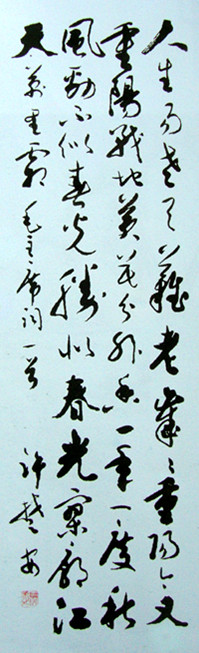 人生易老天難老歲々重陽今又
重陽戰地黃花分外香一年一度秋
風勁不似春光勝似春光寥廓江
天萬里霜 毛主席詞一首 許安